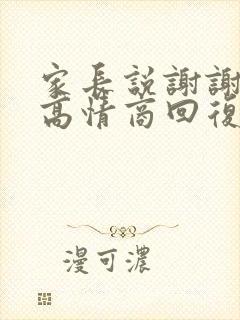 家長説謝謝
高情商回復
漫可濃